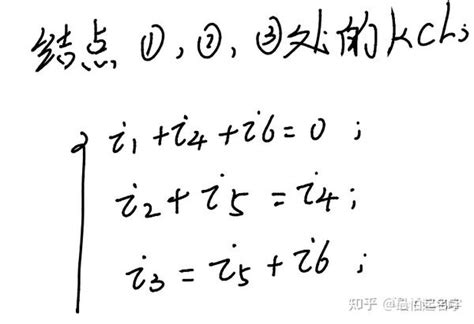 结点 ①,②,③处的KCL;
i₁+i₄+i₆=0 ;
i₂+i₅=i₄;
i₃=i₅+i₆ ;
知乎